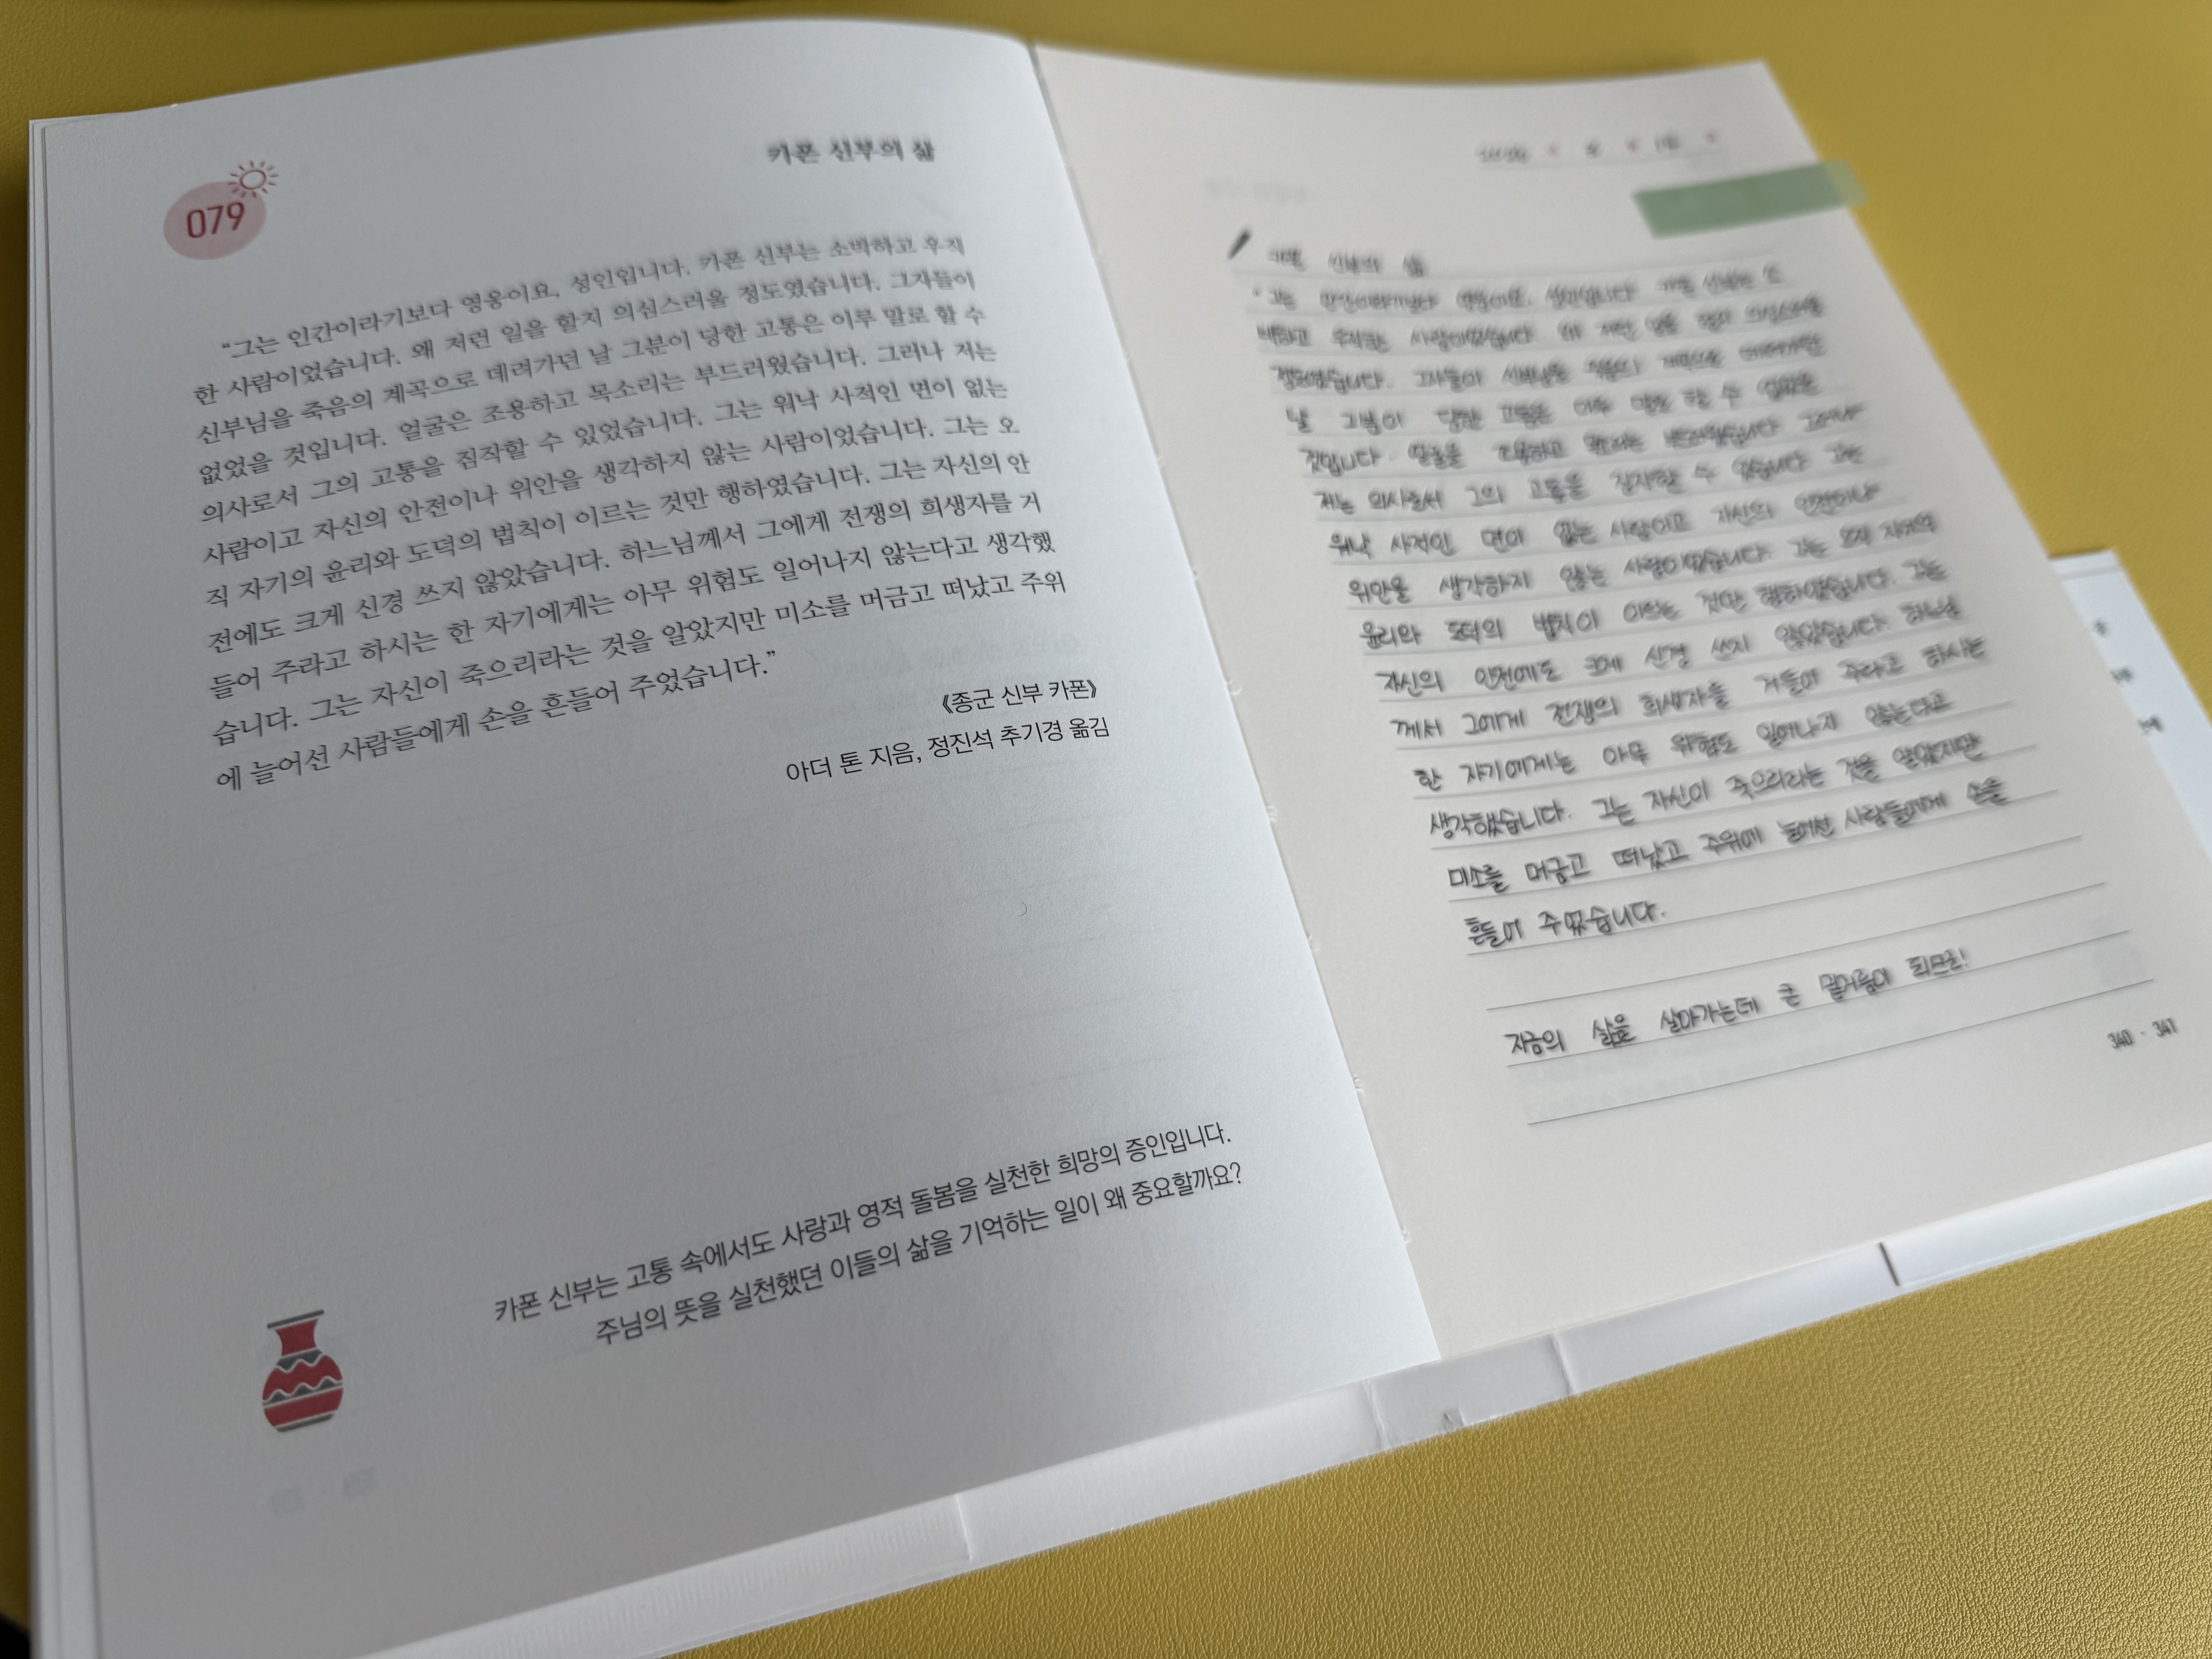 카폰 신부의 삶
079
“그는 인간이라기보다 영웅이요, 성인입니다. 카폰 신부는 소박하고 우직
한 사람이었습니다. 왜 저런 일을 할지 의심스러울 정도였습니다. 그자들이
신부님을 죽음의 계곡으로 데려가던 날 그분이 당한 고통은 이루 말로 할 수
없었을 것입니다. 얼굴은 조용하고 목소리는 부드러웠습니다. 그러나 저는
의사로서 그의 고통을 짐작할 수 있었습니다. 그는 워낙 사적인 면이 없는
사람이고 자신의 안전이나 위안을 생각하지 않는 사람이었습니다. 그는 오
직 자기의 윤리와 도덕의 법칙이 이르는 것만 행하였습니다. 그는 자신의 안
전에도 크게 신경 쓰지 않았습니다. 하느님께서 그에게 전쟁의 희생자를 거
들어 주라고 하시는 한 자기에게는 아무 위험도 일어나지 않는다고 생각했
습니다. 그는 자신이 죽으리라는 것을 알았지만 미소를 머금고 떠났고 주위
에 늘어선 사람들에게 손을 흔들어 주었습니다.”
《종군 신부 카폰》
아더 톤 지음, 정진석 추기경 옮김
카폰 신부는 고통 속에서도 사랑과 영적 돌봄을 실천한 희망의 증인입니다.
주님의 뜻을 실천했던 이들의 삶을 기억하는 일이 왜 중요할까요?
카폰 신부의 삶
“그는 인간이라기보다 영웅이요, 성인입니다. 카폰 신부는 소
박하고 우직한 사람이었습니다. 왜 저런 일을 할지 의심스러울
정도였습니다. 그자들이 신부님을 죽음의 계곡으로 데려가던
날 그분이 당한 고통은 이루 말로 할 수 없었을
것입니다. 얼굴은 조용하고 목소리는 부드러웠습니다. 그러나
저는 의사로서 그의 고통을 짐작할 수 있습니다. 그는
워낙 사적인 면이 없는 사람이고 자신의 안전이나
위안을 생각하지 않는 사람이었습니다. 그는 오직 자기의
윤리와 도덕의 법칙이 이르는 것만 행하였습니다. 그는
자신의 안전에도 크게 신경 쓰지 않았습니다. 하느님
께서 그에게 전쟁의 희생자를 거들어 주라고 하시는
한 자기에게는 아무 위험도 일어나지 않는다고
생각했습니다. 그는 자신이 죽으리라는 것을 알았지만
미소를 머금고 떠났고 주위에 늘어선 사람들에게 손을
흔들어 주었습니다.
지금의 삶을 살아가는데 큰 밑거름이 되므로!
340 · 341